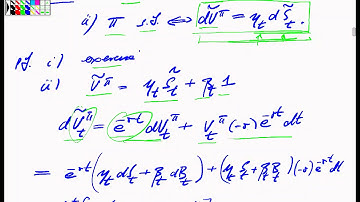 ii) π s.f. ⟺ dṼ^π = η_t dS̃_t.
pf. i) exercise
ii) Ṽ^π = η_t S̃_t + β_t 1
dṼ_t^π = e^{-rt} dV_t^π + V_t^π (-r) e^{-rt} dt
= e^{-rt} (η_t dS_t + β_t dB_t) + (η_t S_t + β_t B_t) (-r) e^{-rt} dt